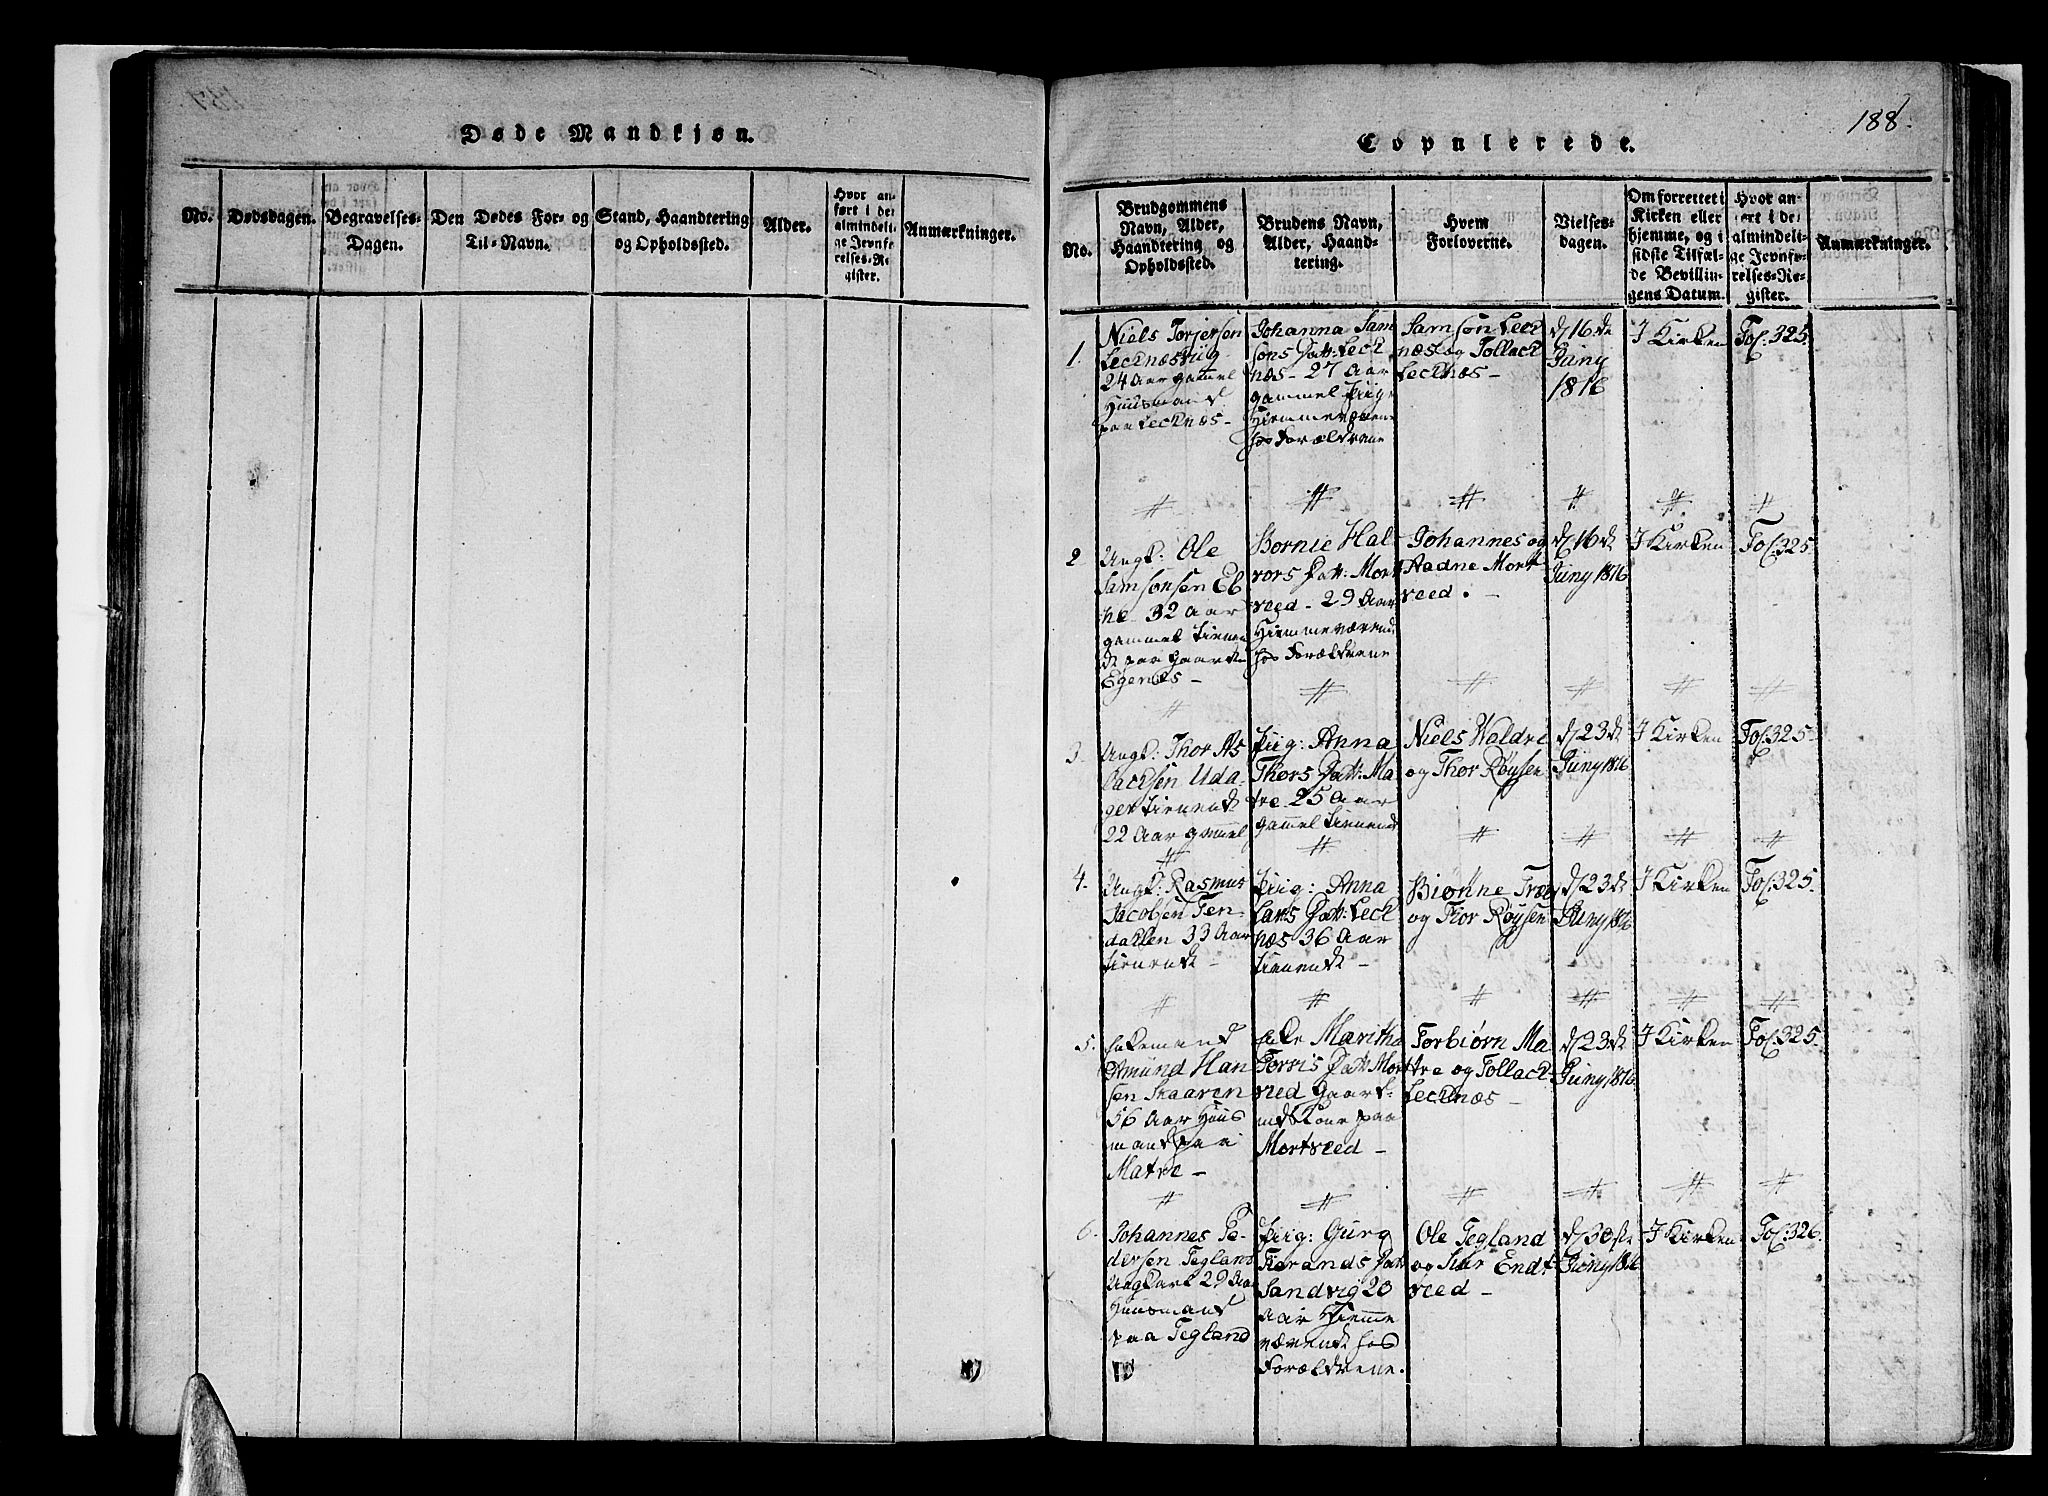 Døde Mandkjøn.
No.
Dødsdagen.
Begravelses-
Dagen.
Den Dødes For- og
Til-Navn.
Stand, Haandtering
og Opholdssted.
Alder.
Hvor an-
ført i det
almindeli-
ge Jevnfø-
relses-Re-
gister.
Anmærkninger.
188.
Copulerede.
No.
Brudgommens
Navn, Alder,
Haandtering og
Opholdssted.
Brudens Navn,
Alder, Haand-
tering.
Hvem
Forloverne.
Vielses-
dagen.
Om forrettet i
Kirken eller
hjemme, og i
sidste Tilfæl-
de Bevillin-
gens Datum.
Hvor an-
ført i det
almindeli-
ge Jevnfø-
relses-Re-
gister.
Anmærkninger.
1.
Niels Torjersen
Lecknæsviig
24 Aar gammel
Huusmand
paa Lecknæs -
Johanna Sam
sons Datt: Leck
næs - 27 Aar
gammel Piige
Hiemmeværene
hos Forældrene
Samson Leck
næs og Tollack
Lecknæs -
d 16de
Juny
1816
I Kirken
Fol. 325.
2
Ungk: Ole
Samsonsen Eb
ne 32 Aar
gammel tienen
de paa Gaarde
Egenæs -
Bornie Hal
vors Datt: Mort
veed - 29 Aar
Hiemmeværend
hos Forældrene
Johannes og
Aadne Mort
veed. -
d 16de
Juny 1816
I Kirken
Fol. 325
3.
Ungk: Thor As
lacksen Uda-
ger tienende
22 Aar gammel
Piig: Anna
Thors Datt: Ma-
tre 25 Aar
gammel tienend
Niels Waldre
og Thor Røysen
d 23de
Juny 1816
I Kirken
Fol. 325.
4.
Ungk: Rasmus
Jacobsen Ten-
dallen 33 Aar
tienende -
Piig: Anna
Lars Datt: Leck
næs 36 Aar
tienende -
Biønne Træe
og Thor Røysen
d 23de
Juny 1816
I Kirken
Fol. 325.
5.
Enkemand
Amund Han
sen Skaaren
56 Aar Huus
mand paa
Matre -
Enke Maritha
Torris Datt: Mort
veed Gaard-
mands Kone paa
Mortveed -
Torbiørn Ma
tre og Tollack
Lecknæs -
d 23de
Juny 1816
I Kirken
Fol. 325.
6.
Johannes Pe-
dersen Tegland
Ungkarl 29 Aar
Huusmand
paa Tegland
Piig: Gurg
Sandvig 20
Aar Hiemme
værende hos
Forældrene.
Ole Tegland
og Endt
veed -
d 30ste
Juny 1816
I Kirken
Fol: 326.